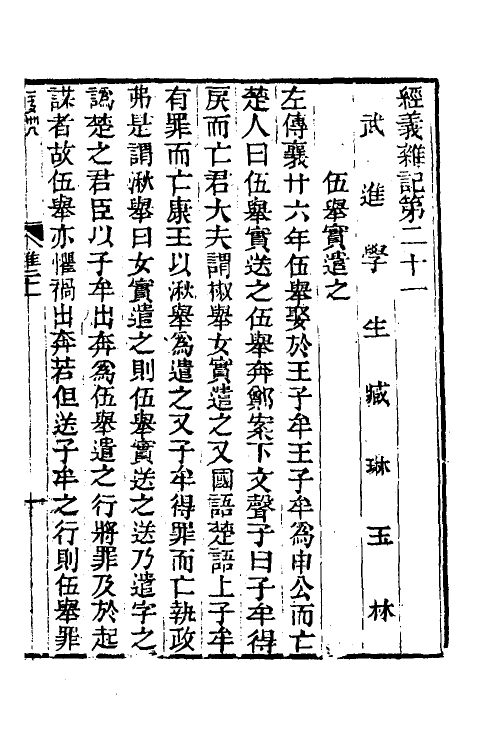 經義雜記第二十一
武進學生臧琳玉林
伍舉實遣之
左傳襄廿六年伍舉娶於王子牟王子牟爲申公而亡
楚人曰伍舉實送之伍舉奔鄭案下文聲子曰子牟得
戾而亡君大夫謂椒舉女實遣之又國語楚語上子牟
有罪而亡康王以湫舉爲遣之又子牟得罪而亡執政
弗是謂湫舉曰女實遣之則伍舉實送之送乃遣字之
譌楚之君臣以子牟出奔爲伍舉遣之行將罪及於起
謀者故伍舉亦懼禍出奔若但送子牟之行則伍舉罪